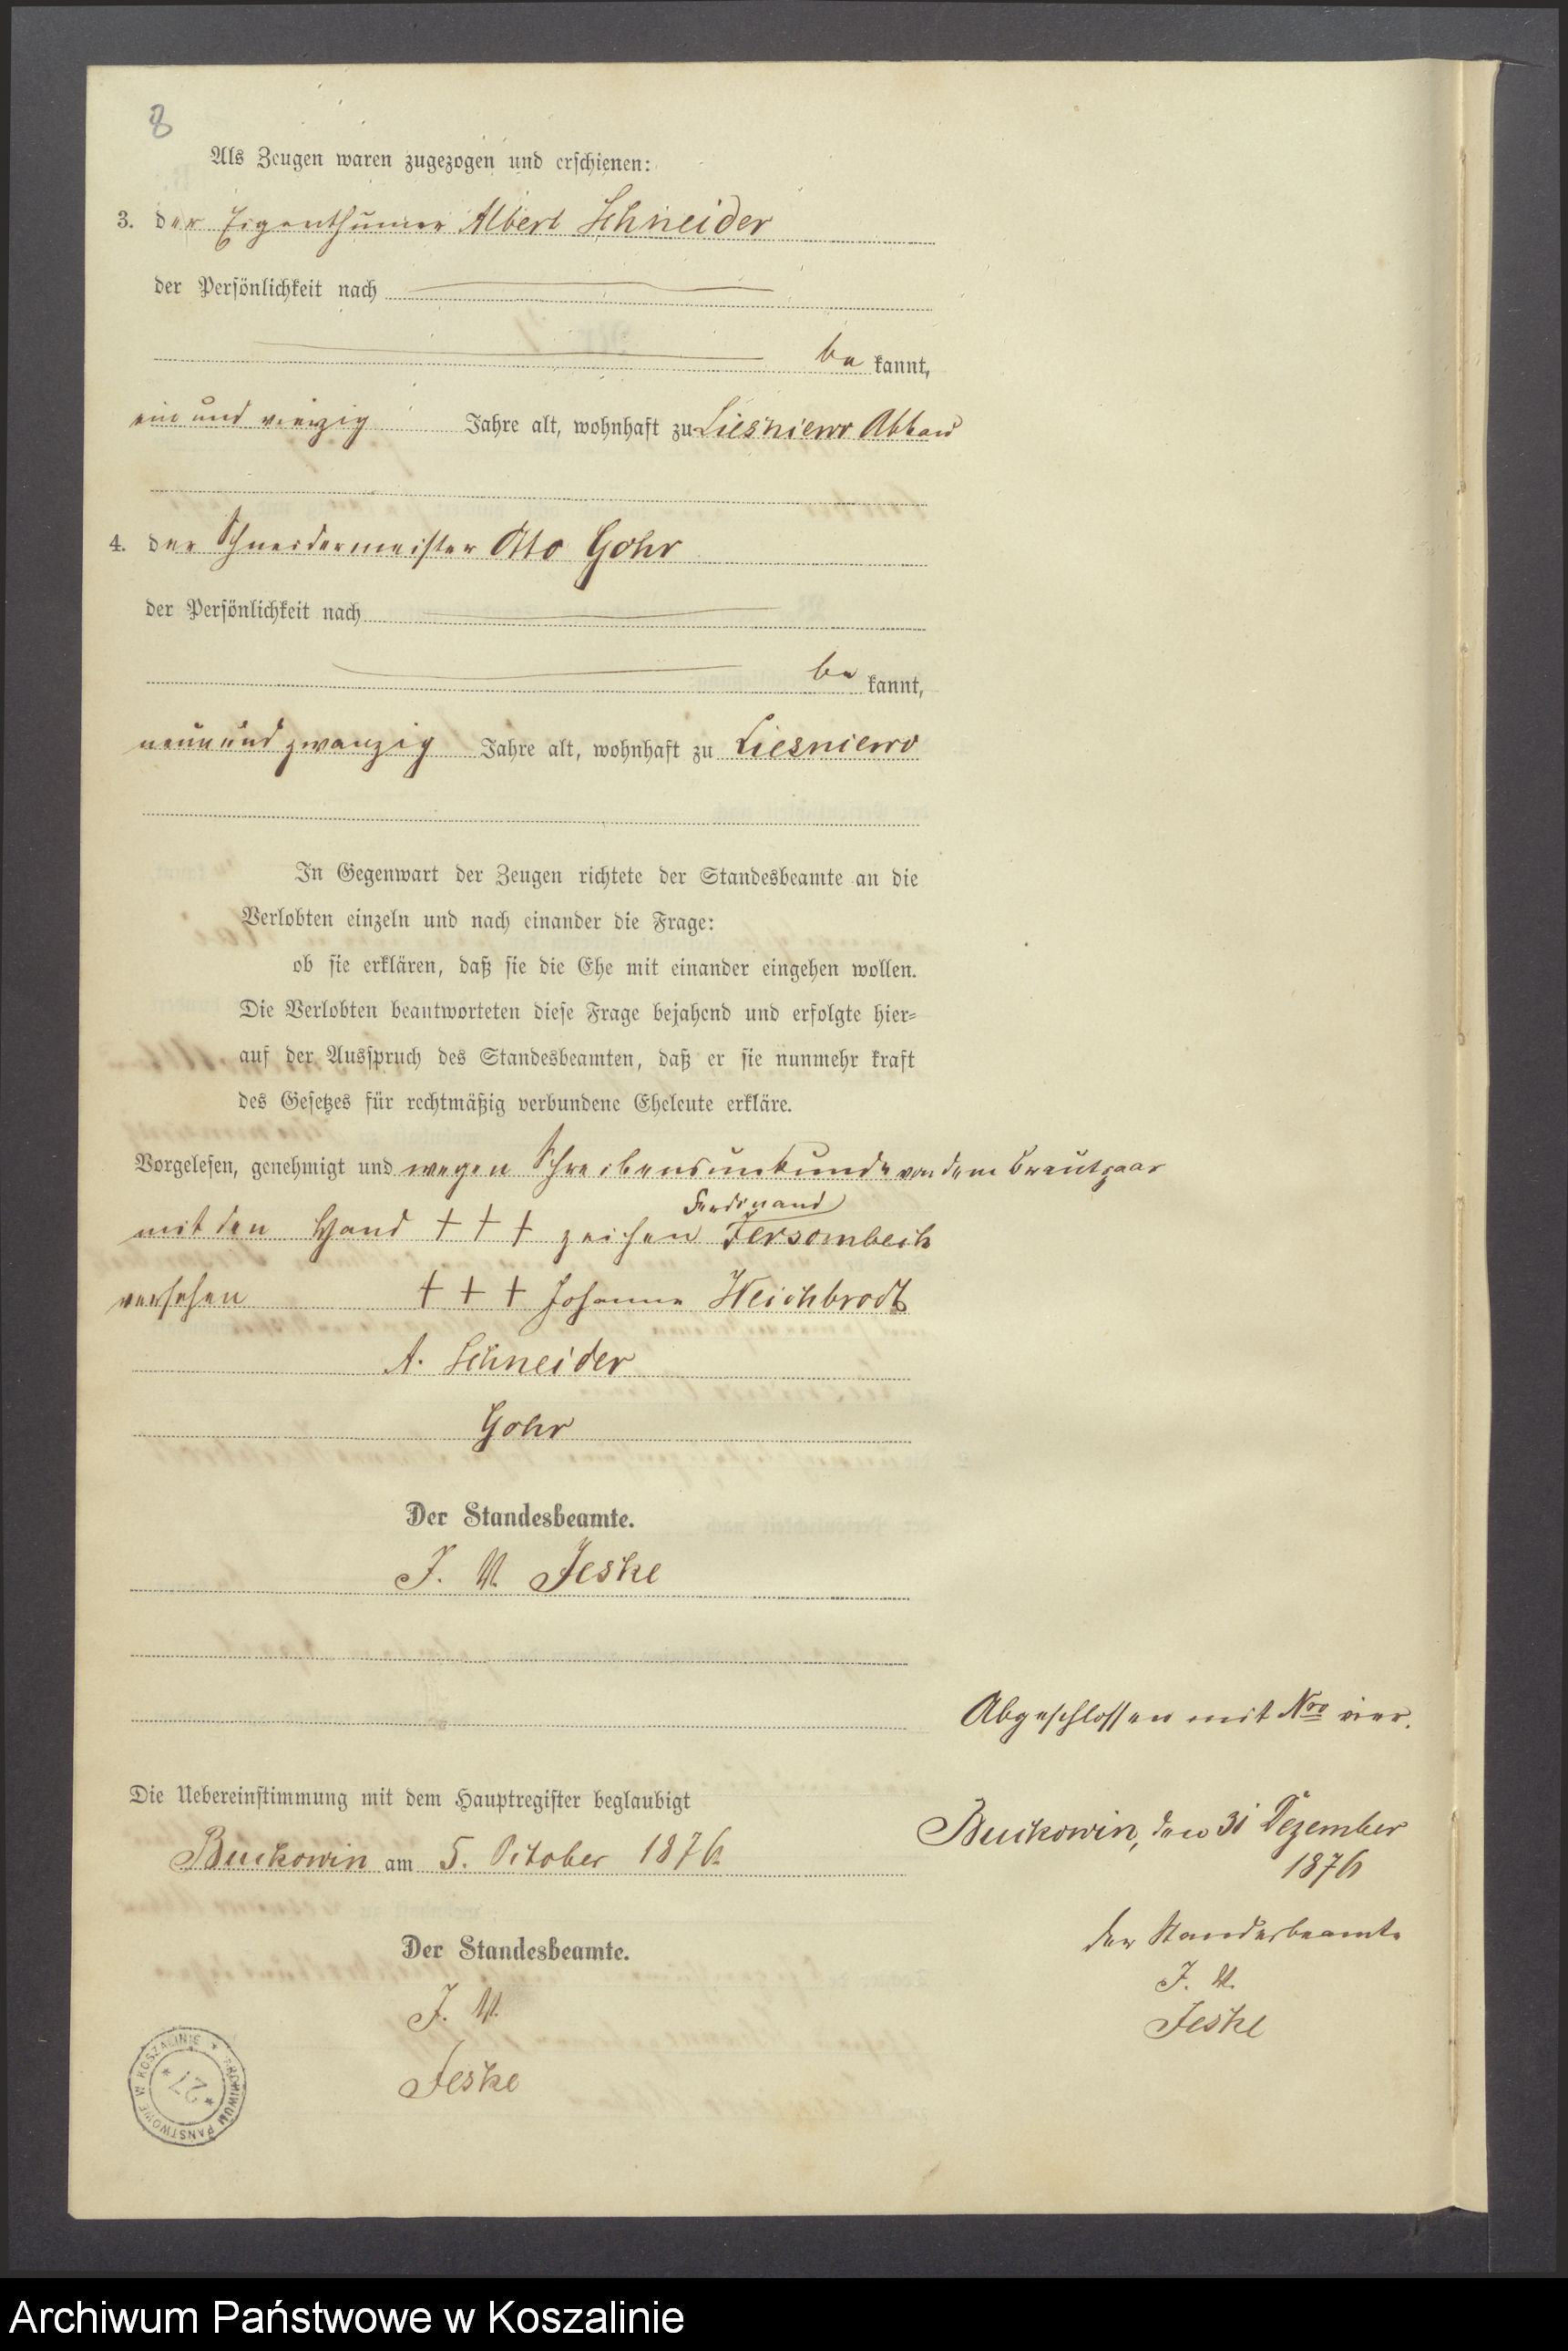 8
Als Zeugen waren zugezogen und erschienen:
3. der Eigenthümer Albert Schneider
der Persönlichkeit nach
be kannt,
ein und vierzig Jahre alt, wohnhaft zu Liesniewo Abbau
4. der Schneidermeister Otto Gohr
der Persönlichkeit nach
be kannt,
neun und zwanzig Jahre alt, wohnhaft zu Liesniewo
In Gegenwart der Zeugen richtete der Standesbeamte an die
Verlobten einzeln und nach einander die Frage:
ob sie erklären, daß sie die Ehe mit einander eingehen wollen.
Die Verlobten beantworteten diese Frage bejahend und erfolgte hier-
auf der Ausspruch des Standesbeamten, daß er sie nunmehr kraft
des Gesetzes für rechtmäßig verbundene Eheleute erkläre.
Vorgelesen, genehmigt und wegen Schreibensunkunde von dem Brautpaar
Ferdinand
mit den Hand + + + zeichen Fersombeck
versehen + + + Johanne Weichbrodt
A. Schneider
Gohr
Der Standesbeamte.
J. V. Jeske
Abgeschlossen mit Nro vier.
Die Uebereinstimmung mit dem Hauptregister beglaubigt
Buckowin am 5. October 1876
Buckowin, den 31 Dezember
1876
Der Standesbeamte.
J. V.
Jeske
der Standesbeamte
J. V.
Jeske
ARCHIWUM PAŃSTWOWE W KOSZALINIE
27
Archiwum Państwowe w Koszalinie